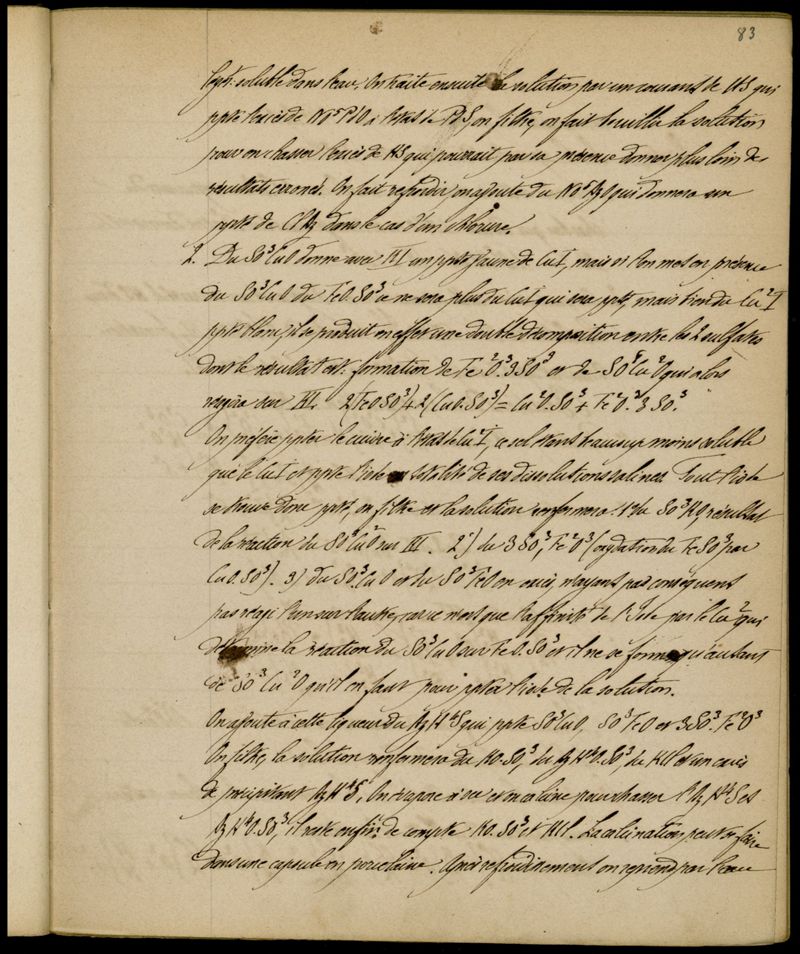 83
soluble dans l'eau. On traite ensuite la solution par un courant de HS qui
ppte l'excès de No⁵PbO à l'état de PbS, on filtre, on fait bouillir la solution
pour en chasser l'excès de HS qui pourrait par sa présence donner plus loin des
résultats erronés. On fait refroidir on ajoute du No⁵AgO qui donnera un
ppté de ClAg dans le cas d'un chlorure.
2. Du SO³CuO donne avec KI un ppté jaune de CuI, mais si l'on met en présence
du SO³CuO du FeO.SO³ ce ne sera plus du CuI qui sera ppté, mais bien du Cu²I
ppté blanc; il se produit en effet une double décomposition entre les 2 sulfates
dont le résultat est: formation de Fe²O³.3SO³ et de SO³Cu²O qui alors
réagira sur KI. 2(FeOSO³)+2(CuO.SO³)=Cu²O.SO³+Fe²O³.3SO³.
On préfère ppter le cuivre à l'état de Cu²I, ce sel étant beaucoup moins soluble
que le CuI et ppte l'iode en totalité de ses dissolutions salines. Tout l'iode
se trouve donc ppté, on filtre et la solution renfermera: 1° du SO³KO, résultat
de la réaction du SO³Cu²O sur KI. 2°) du 3SO³,Fe²O³ (oxydation du FeSO³ par
CuO.SO³). 3) du SO³.CuO et du SO³FeO en excès, n'ayant par conséquent
pas réagi l'un sur l'autre, car ce n'est que l'affinité de l'iode par le Cu² qui
détermine la réaction du SO³CuO sur FeO.SO³ et il ne se forme qu'autant
de SO³Cu²O qu'il en faut pour ppter l'iode de la solution.
On ajoute à cette liqueur du AzH⁴S qui ppte SO³CuO, SO³FeO et 3SO³.Fe²O³
On filtre, la solution renfermera du KO.SO³, du AzH⁴O.SO³, du KCl et un excès
de précipitant AzH⁴S. On évapore à sec et on calcine pour chasser l'AzH⁴S et
AzH⁴O.SO³, il reste en fin de compte KO.SO³ et KCl. La calcination peut se faire
dans une capsule en porcelaine. Après refroidissement on reprend par l'eau